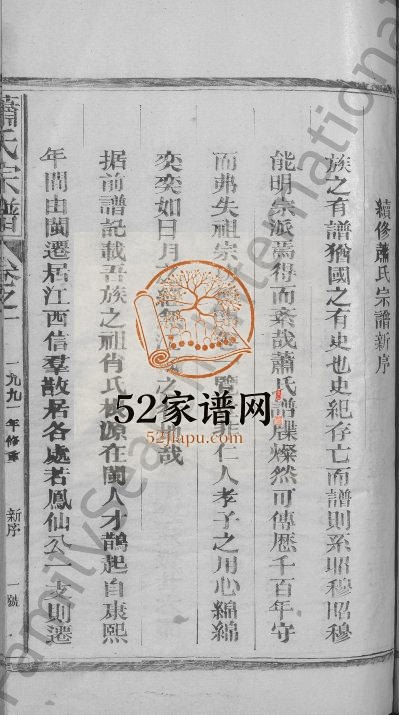 續修蕭氏宗譜新序
族之有譜猶國之有史也史紀存亡而譜則系昭穆昭穆
能明宗派焉得而紊哉蕭氏譜牒燦然可傳歷千百年守
而弗失祖宗 仁人孝子之用心綿綿
奕奕如日月 之 哉
据前譜記載吾族之祖肖氏 源在閩人才鵲起自康熙
年間由閩遷居江西信羣散居各處若鳳仙公一支則遷
蕭氏宗譜 卷之一 一九九一年修重 新序 一號
52家谱网
52jiapu.com
FamilySearch International